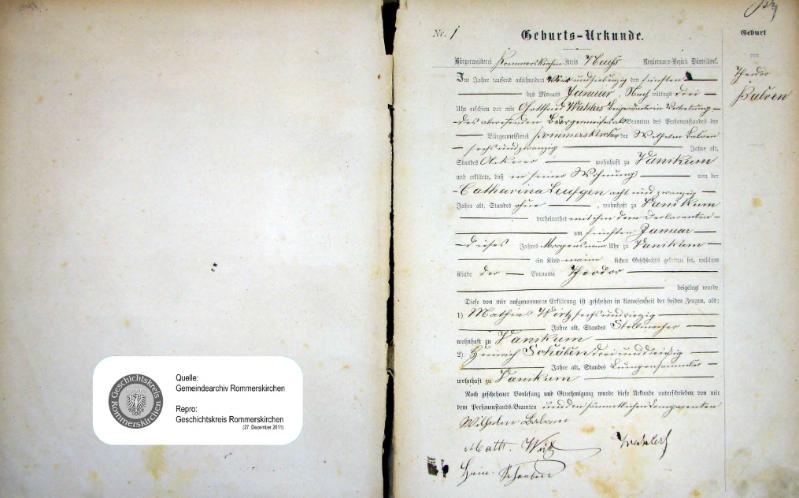 Quelle:
Gemeindearchiv Rommerskirchen
Repro:
Geschichtskreis Rommerskirchen
(27. Dezember 2011)
Geschichtskreis
Rommerskirchen
Nr. 1
Geburts-Urkunde.
Geburt
von
Theodor
Balven
Bürgermeisterei Rommerskirchen Kreis Neuss Regierungs-Bezirk Düsseldorf.
Im Jahre tausend achthundert vierundsiebzig den fünften
des Monats Januar, Nachmittags drei
Uhr erschien vor mir Gottfried
des abwesenden Bürgermeisters Beamten des Personenstandes der
Bürgermeisterei Rommerskirchen der Wilhelm Balven
sechsundzwanzig Jahre alt,
Standes Ackerer wohnhaft zu Vanikum
und erklärte, daß in seiner Wohnung von der
Catharina acht und zwanzig
Jahre alt, Standes ohne, wohnhaft zu Vanikum
verheirathet mit ihm dem Declaranten
am fünften Januar
dieses Jahres Morgens neun Uhr zu Vanikum
ein Kind männlichen Geschlechts geboren sei, welchem
Kinde der Vorname Theodor
beigelegt wurde
Diese von mir aufgenommene Erklärung ist geschehen in Anwesenheit der beiden Zeugen, als:
1) Mathias Wirtz sechsundvierzig
Jahre alt, Standes Stellmacher
wohnhaft zu Vanikum
2) Heinrich dreiunddreißig
Jahre alt, Standes
wohnhaft zu Vanikum
Nach geschehener Vorlesung und Genehmigung wurde diese Urkunde unterschrieben von mir
dem Personenstands-Beamten und den sämmtlichen Comparenten
Wilhelm Balven
Math. Wirtz
Heinr.